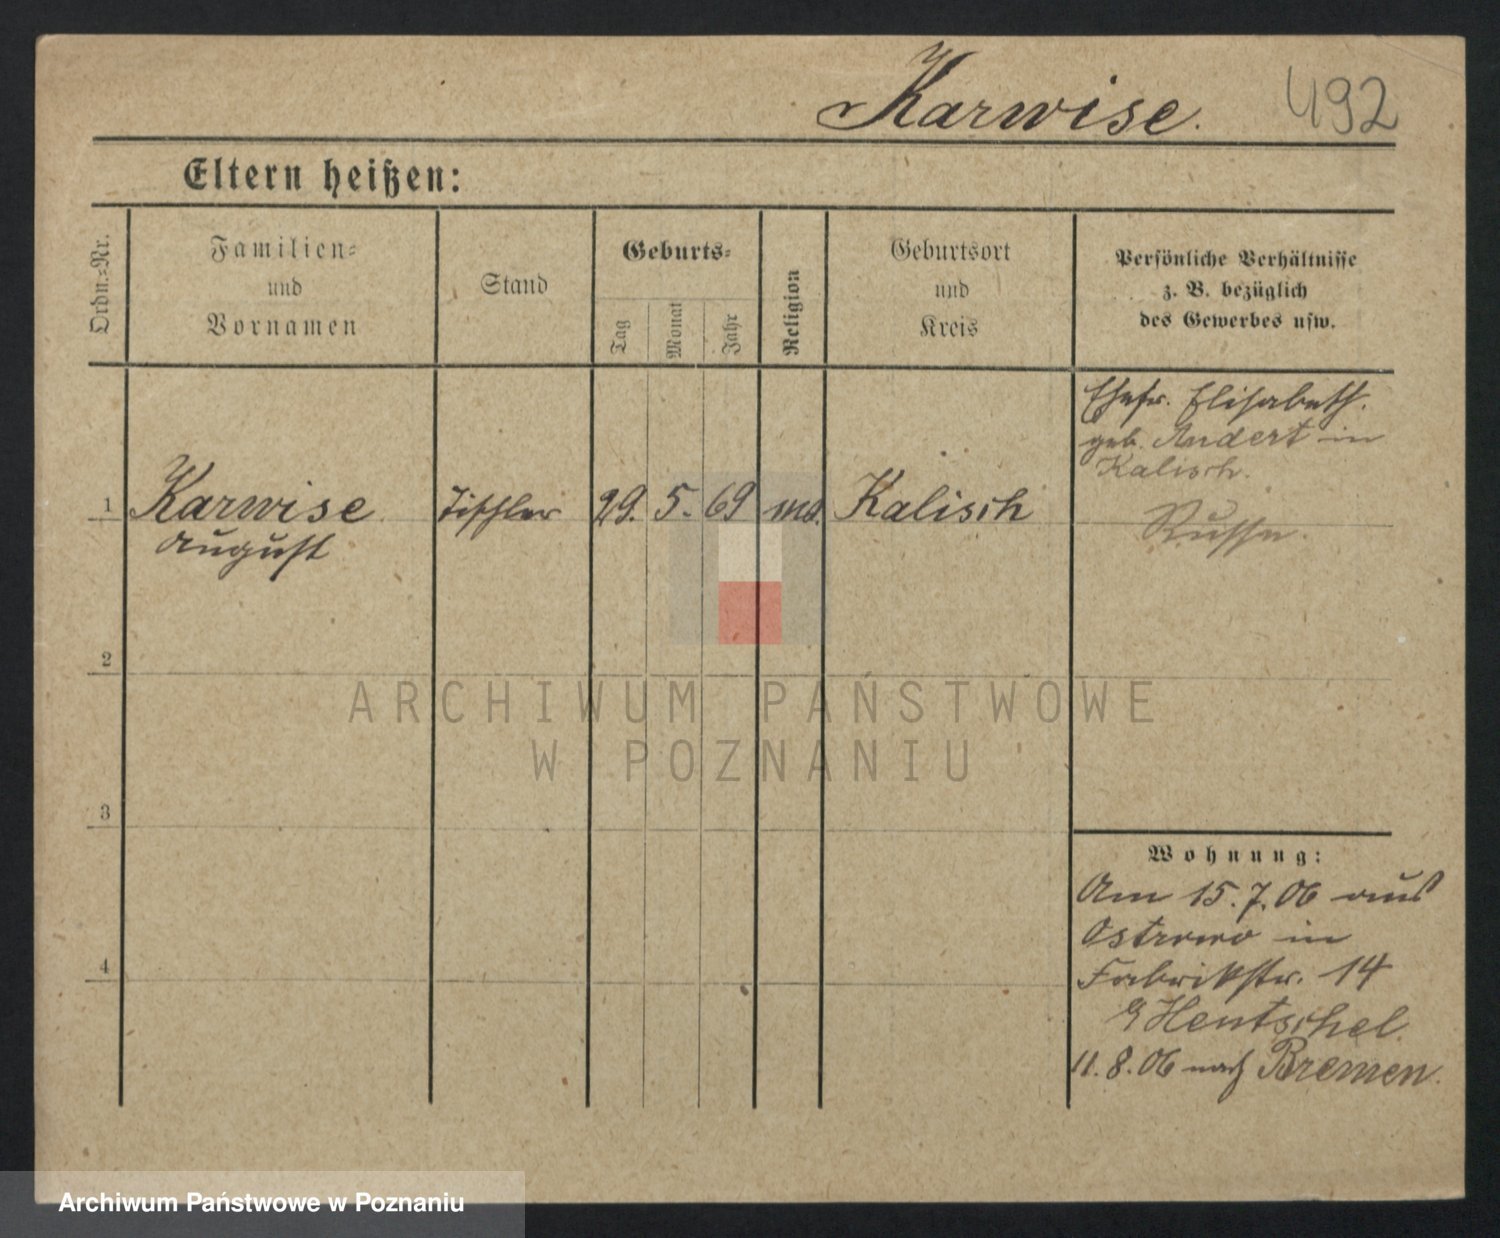 Karwise. 492
Eltern heißen:
Ordn.-Nr.
Familien-
und
Vornamen
Stand
Geburts-
Tag
Monat
Jahr
Religion
Geburtsort
und
Kreis
Persönliche Verhältnisse
z. B. bezüglich
des Gewerbes usw.
1
Karwise
August
Tischler
29. 5. 69
Kalisch
Ehefr. Elisabeth.
geb. Andert in
Kalisch.
Russe.
2
3
4
Wohnung:
Am 15.7.06 aus
Ostrowo in
Fabrikstr. 14
Hentschel.
11.8.06 nach Bremen.
ARCHIWUM PAŃSTWOWE
W POZNANIU
Archiwum Państwowe w Poznaniu